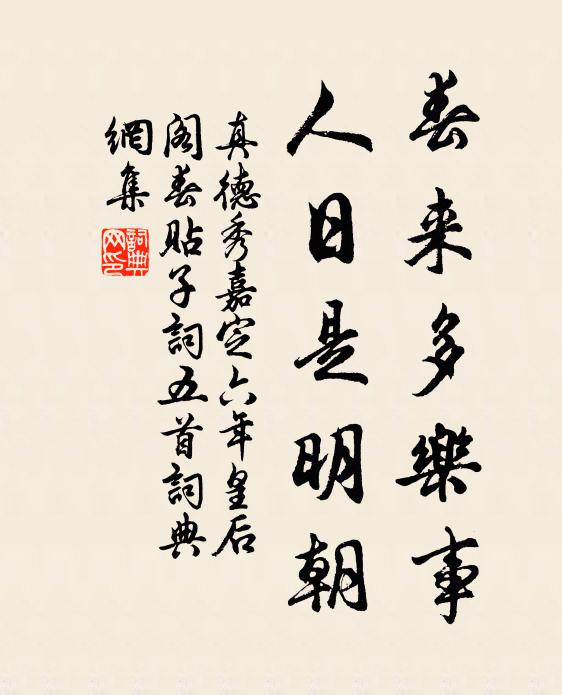 春来多樂事
人日是明朝
真德秀嘉定六年皇后
阁春貼子詞五首詞典
網集
詞典
网印